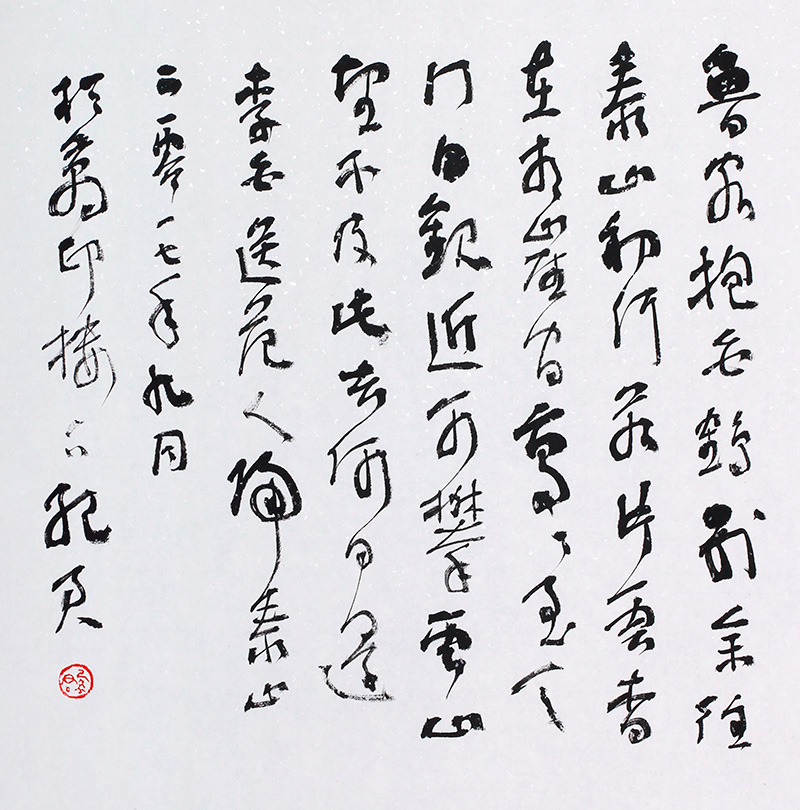 魯客抱白鶴別余往
泰山初行若片雲杳
在青崖間高々至天
門日觀近可攀雲山
望不及此去何日還
李白送范人歸泰山
二零一七年九月
於萬印樓